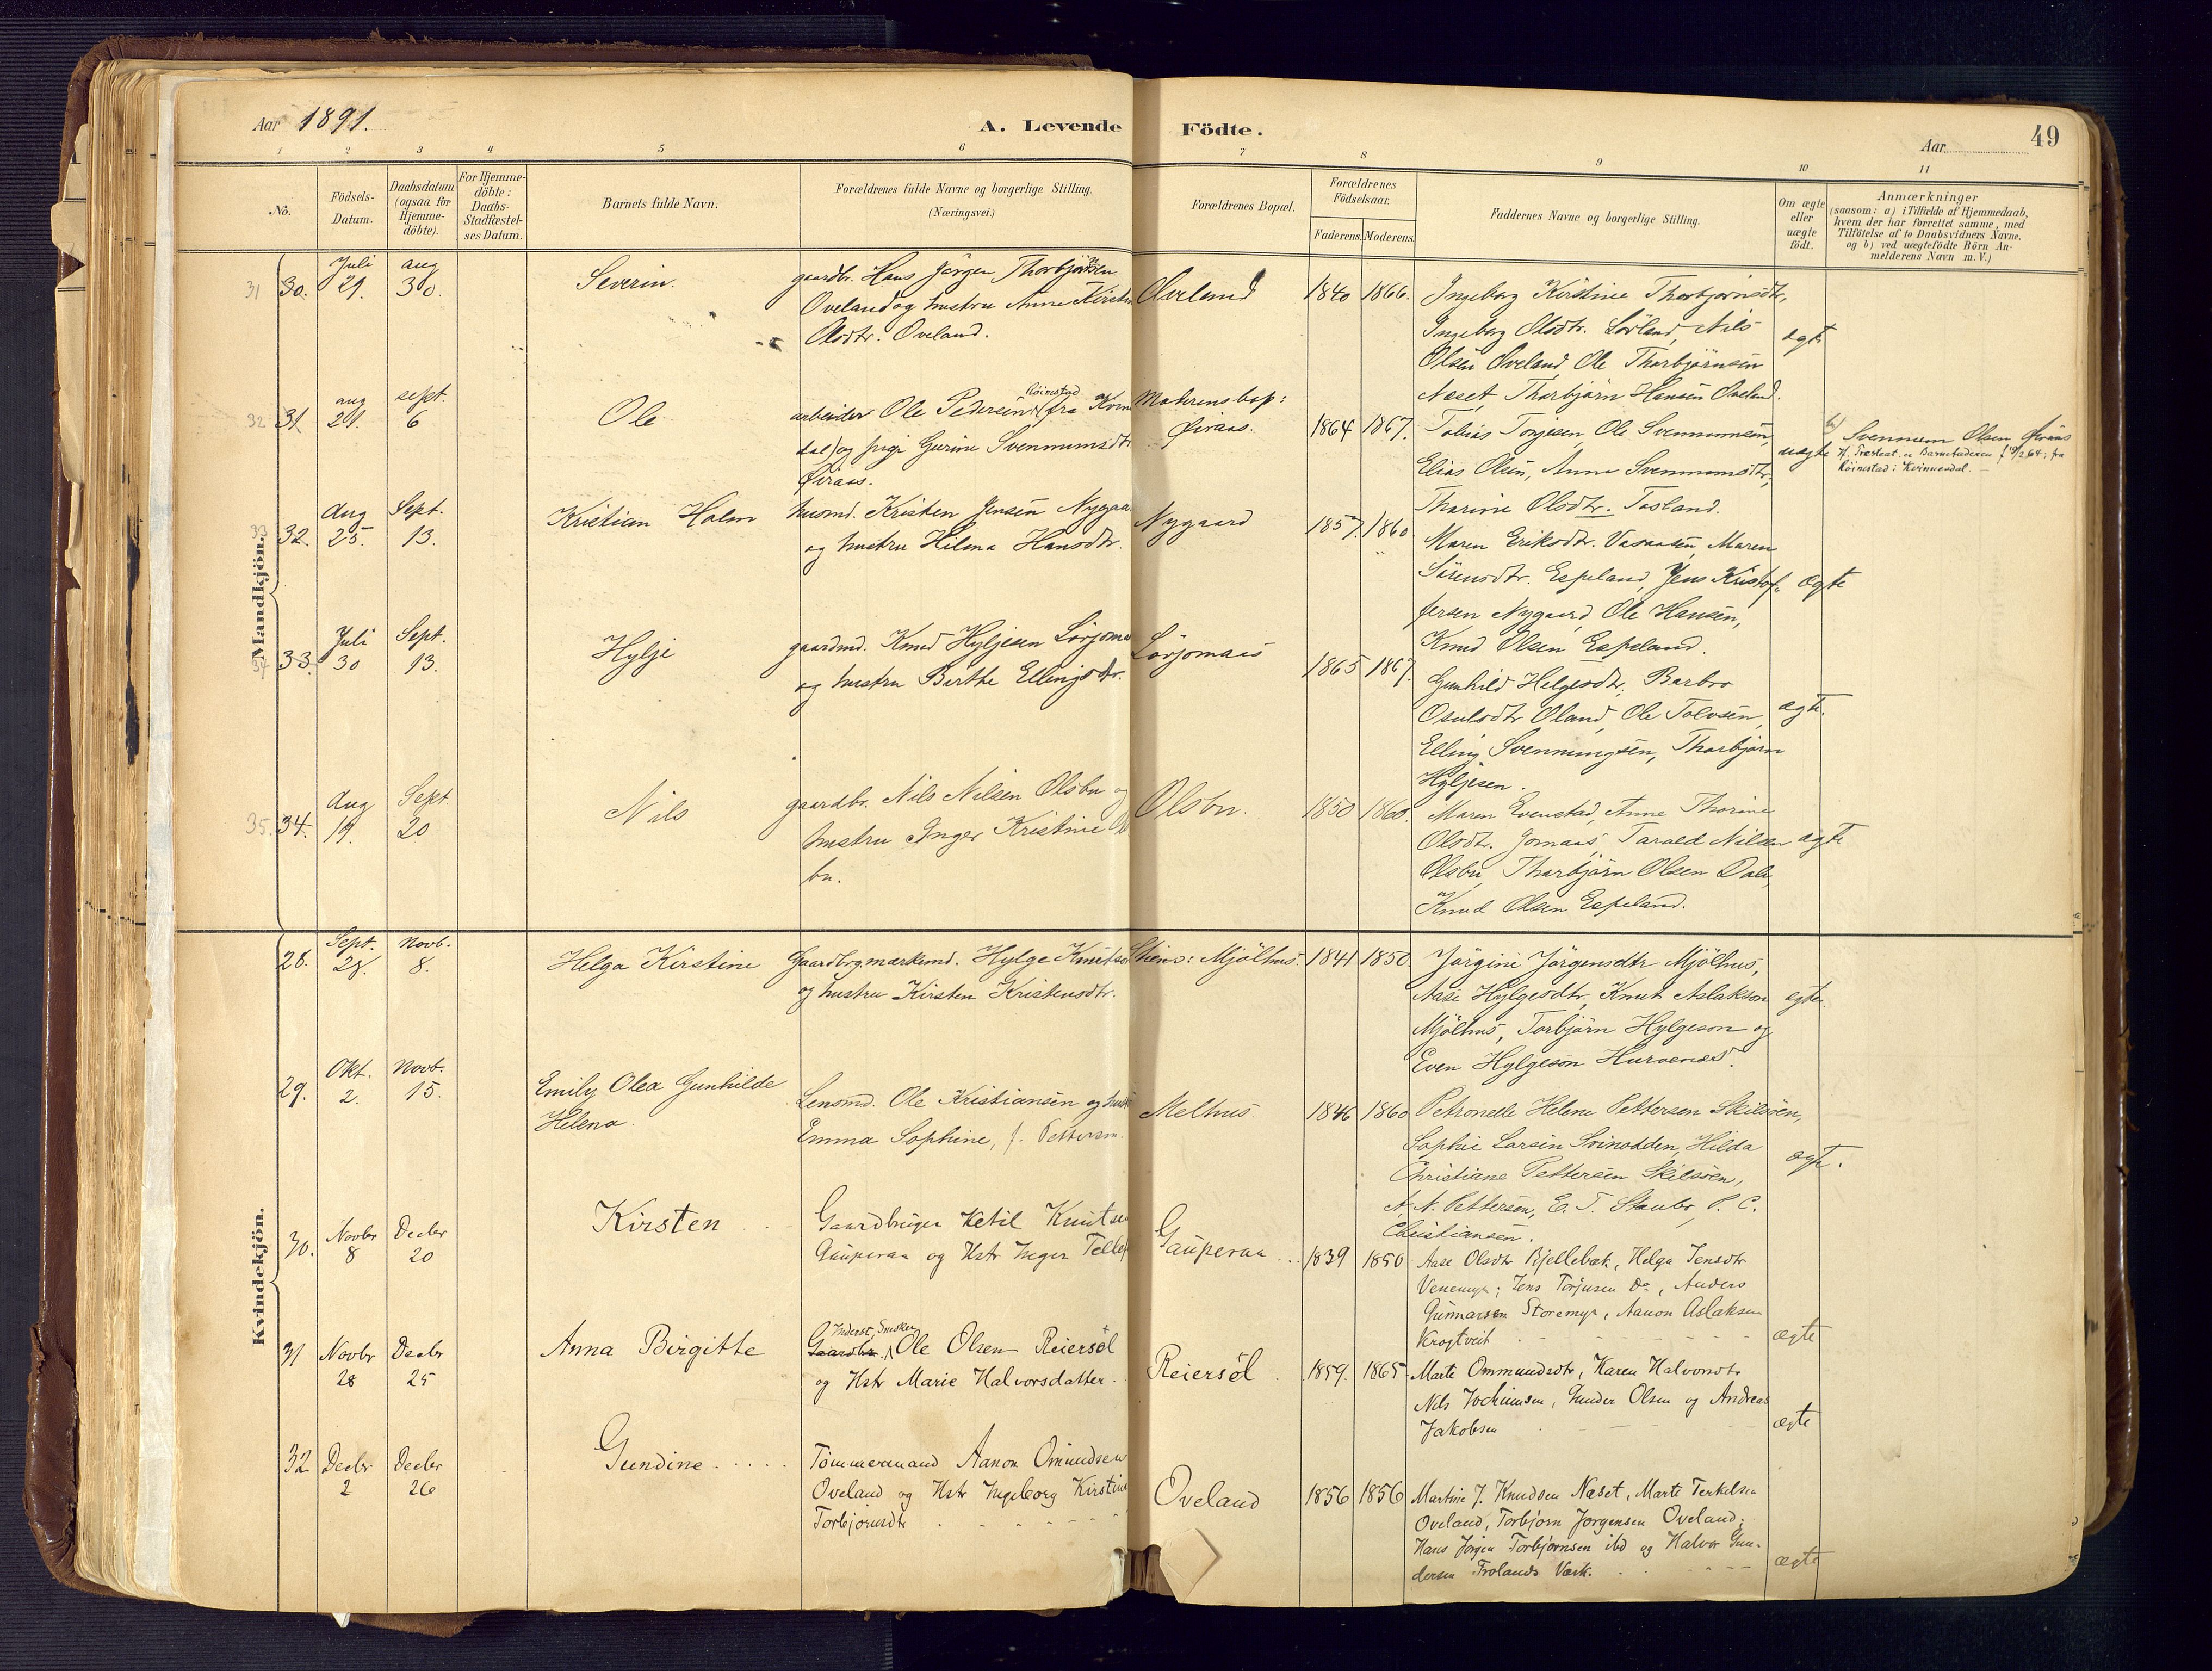 Aar 1891.
A. Levende Födte.
Aar
49
1 2 3 4 5 6 7 8 9 10 11
No.
Födsels-
Datum.
Daabsdatum
(ogsaa for
Hjemme-
döbte).
For Hjemme-
döbte:
Daabs-
Stadfæstel-
ses Datum.
Barnets fulde Navn.
Forældrenes fulde Navne og borgerlige Stilling.
(Næringsvei.)
Forældrenes Bopæl.
Forældrenes
Födselsaar.
Faderens. Moderens.
Faddernes Navne og borgerlige Stilling.
Om ægte
eller
uægte
födt.
Anmærkninger
(saasom: a) i Tilfælde af Hjemmedaab,
hvem der har forrettet samme, med
Tilföielse af to Daabsvidners Navne,
og b) ved uægtefödte Börn An-
melderens Navn m.V.)
Mandkjön.
31 30.
Juli
29.
aug
30.
Severin.
gaardbr. Hans Jörgen Thorbjörnsen
Oveland og hustru Anne Kirstine
Olsdtr. Oveland.
Oveland
1840 1866.
Ingeborg Kirstine Thorbjörnsdtr,
Ingeborg Olsdtr. Lörland, Nils
Olsen Oveland, Ole Thorbjörnsen
Næset, Thorbjörn Hansen Oveland.
ægte
32 31
aug
21.
sept.
6
Ole
arbeider Ole Pedersen Röinestad (fra Kvin
dal) og pige Gurine Svennumsdtr
Öiraas.
Moderens bop:
Öiraas.
1864 1867.
Tobias Torjesen, Ole Svennumsen,
Elias Olsen, Anne Svennumsdtr,
Thorine Olsdtr. Tosland.
uægte
b) Svennum Olsen Öiraas
Röinestad i Kvinnesdal.
33 32.
Aug
25.
Sept.
13.
Kristian Holm
husmd. Kristen Jensen Nygaa
og hustru Hilma Hansdtr.
Nygaard
1857. 1860
Maren Eriksdtr. Vasaasen, Maren
Sörensdtr. Espeland, Jens Kristof-
fersen Nygaard, Ole Hansen,
Knud Olsen Espeland.
ægte
34 33.
Juli
30
Sept.
13.
Hylje
gaardmd. Knud Hyljesen Lörjomaa
og hustru Birthe Ellingsdtr.
Lörjomaas
1865 1867.
Gunhild Helgesdtr, Barbro
Osulsdtr Oland, Ole Tolvsen,
Elling Svenningsen, Thorbjörn
Hyljesen.
ægte.
35. 34.
Aug
19.
Sept
20
Nils
gaardbr. Nils Nilsen Olsbu og
hustru Inger Kristine Ols
bu.
Olsbu.
1850 1860.
Maren Evenstad, Anne Thorine
Olsdtr. Jomaas, Tarald Nilsen
Olsbu, Thorbjörn Olsen Dale,
Knud Olsen Espeland.
ægte
Kvindekjön.
28.
Sept.
28.
Novb.
8.
Helga Kirstine
Gaardbr. Hylge Knutson
og hustru Kirsten Kristensdtr.
Mjölhus.
1841 1850
Jörgine Jörgensdtr Mjölhus,
Aase Hylgesdtr, Knut Aslakson
Mjölhus, Torbjörn Hylgeson og
Even Hylgeson Hurvenes.
ægte.
29.
Okt.
2.
Novb.
15.
Emily Olea Gunhilde
Helena.
Lensmd. Ole Kristiansen og hustr
Emma Sophine, f. Pettersen.
Melhus
1846 1860
Petronelle Helene Pettersen Skilsöen,
Sophie Larsen Svinodden, Hilda
Christiane Pettersen Skilsöen,
A. N. Pettersen, E. T. Staubo, P. C.
Christiansen.
ægt.
30.
Novbr
8
Decbr
20
Kirsten
Gaardbruger Ketil Knutsen
Gauperaa og Hstr Inger Tellef
Gauperaa
1839 1850
Aase Olsdtr Bjellebæk, Helga Jensdtr
Venemyr; Jens Torjusen Do, Anders
Gunnarsen Storemyr, Aanon Aslaksen
Krogtveit
ægte
31
Novbr
28
Decbr
25
Anna Birgitte
Inderst, Snedker
Gaardbr Ole Olsen Reiersöl
og Hstr Marie Halvorsdatter.
Reiersöl
1859. 1865
Marte Ommundsdtr, Karen Halvorsdtr
Nils Jochumsen, Gunder Olsen og Andreas
Jakobsen
ægte
32
Decbr
2
Decbr
26
Gundine
Tömmermand Aanon Omundsen
Oveland og Hstr Ingeborg Kirstine
Torbjörnsdtr
Oveland
1856 1856
Martine J. Knudsen Næset, Marte Terkelsen
Oveland, Torbjörn Jörgensen Oveland;
Hans Jörgen Torbjörnsen ibd og Halvor Gun-
dersen Frolands Værk.
ægte